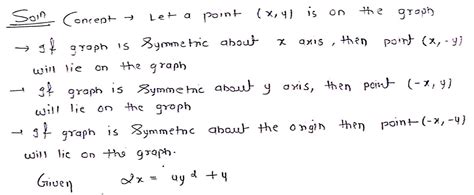 Soln Concept → Let a point (x,y) is on the graph
→ If graph is Symmetric about x axis, then point (x,-y)
will lie on the graph
→ If graph is Symmetric about y axis, then point (-x,y)
will lie on the graph
→ If graph is Symmetric about the origin then point (-x,-y)
will lie on the graph.
Given 2x = 4y² + 4